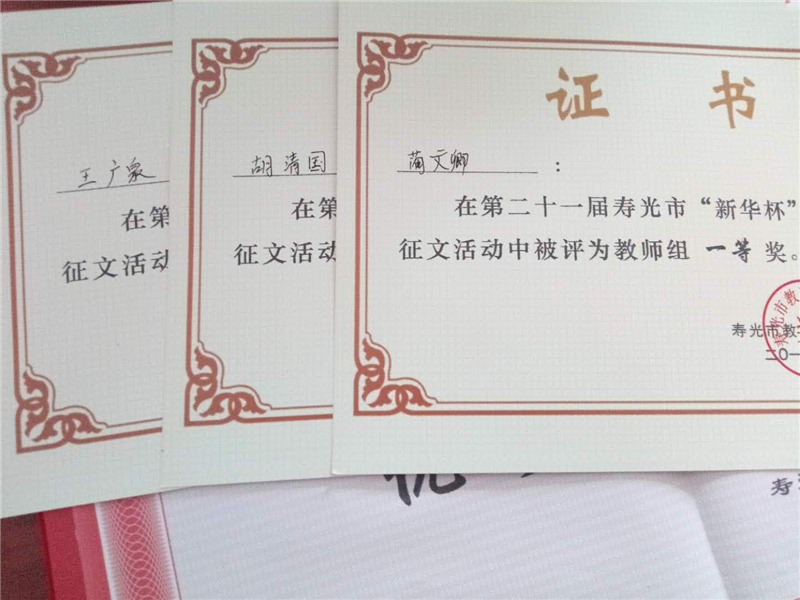 王广象
在第
征文活动
胡清国
在第
征文活动
证 书
蔺文卿 :
在第二十一届寿光市“新华杯”
征文活动中被评为教师组 一等 奖。
寿光市教
寿光市教
二〇一
优
寿